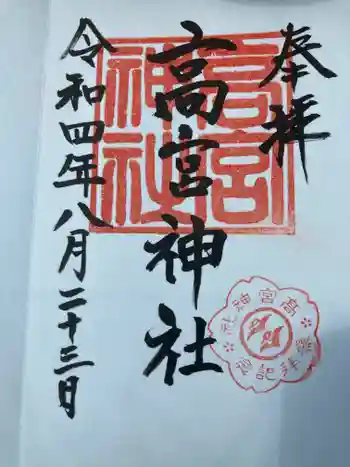 奉拝
高宮神社
令和四年八月二十三日
高宮神社
高宮神社参拝記念